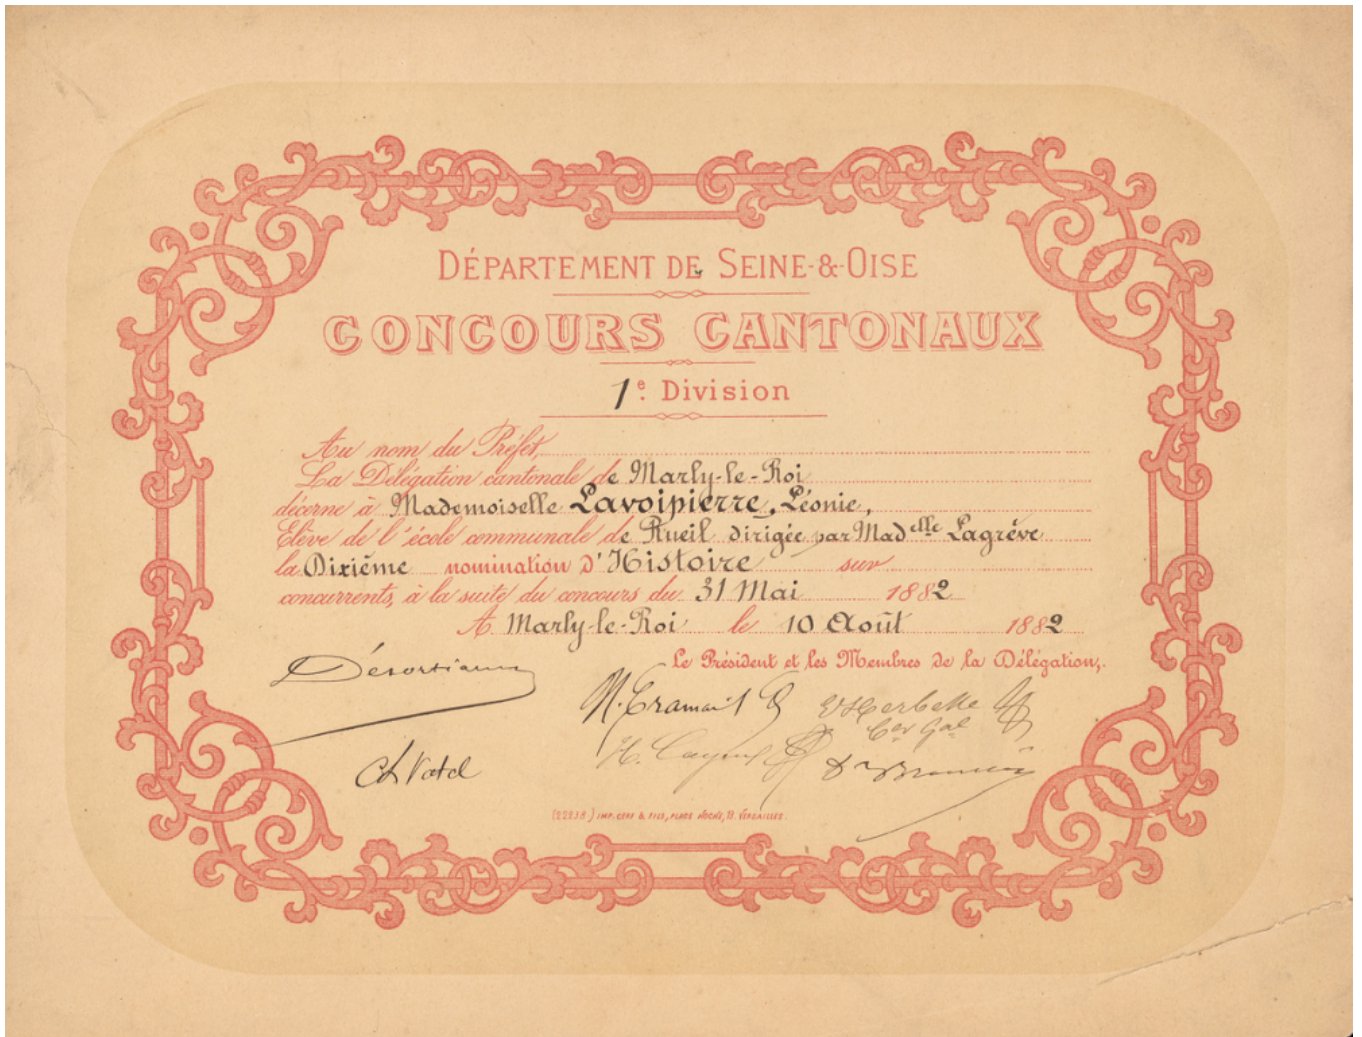 DÉPARTEMENT DE SEINE-&-OISE
CONCOURS CANTONAUX
1e. Division
Au nom du Préfet,
La Délégation cantonale de Marly-le-Roi
décerne à Mademoiselle Lavoipierre, Léonie,
Elève de l'école communale de Rueil dirigée par Madelle Lagrève
la Dixième nomination d'Histoire sur
concurrents, à la suite du concours du 31 Mai 1882
A Marly-le-Roi le 10 Août 1882
Le Président et les Membres de la Délégation,
Ch Vatel
IMP. CERF & FILS, PLACE HOCHE, VERSAILLES